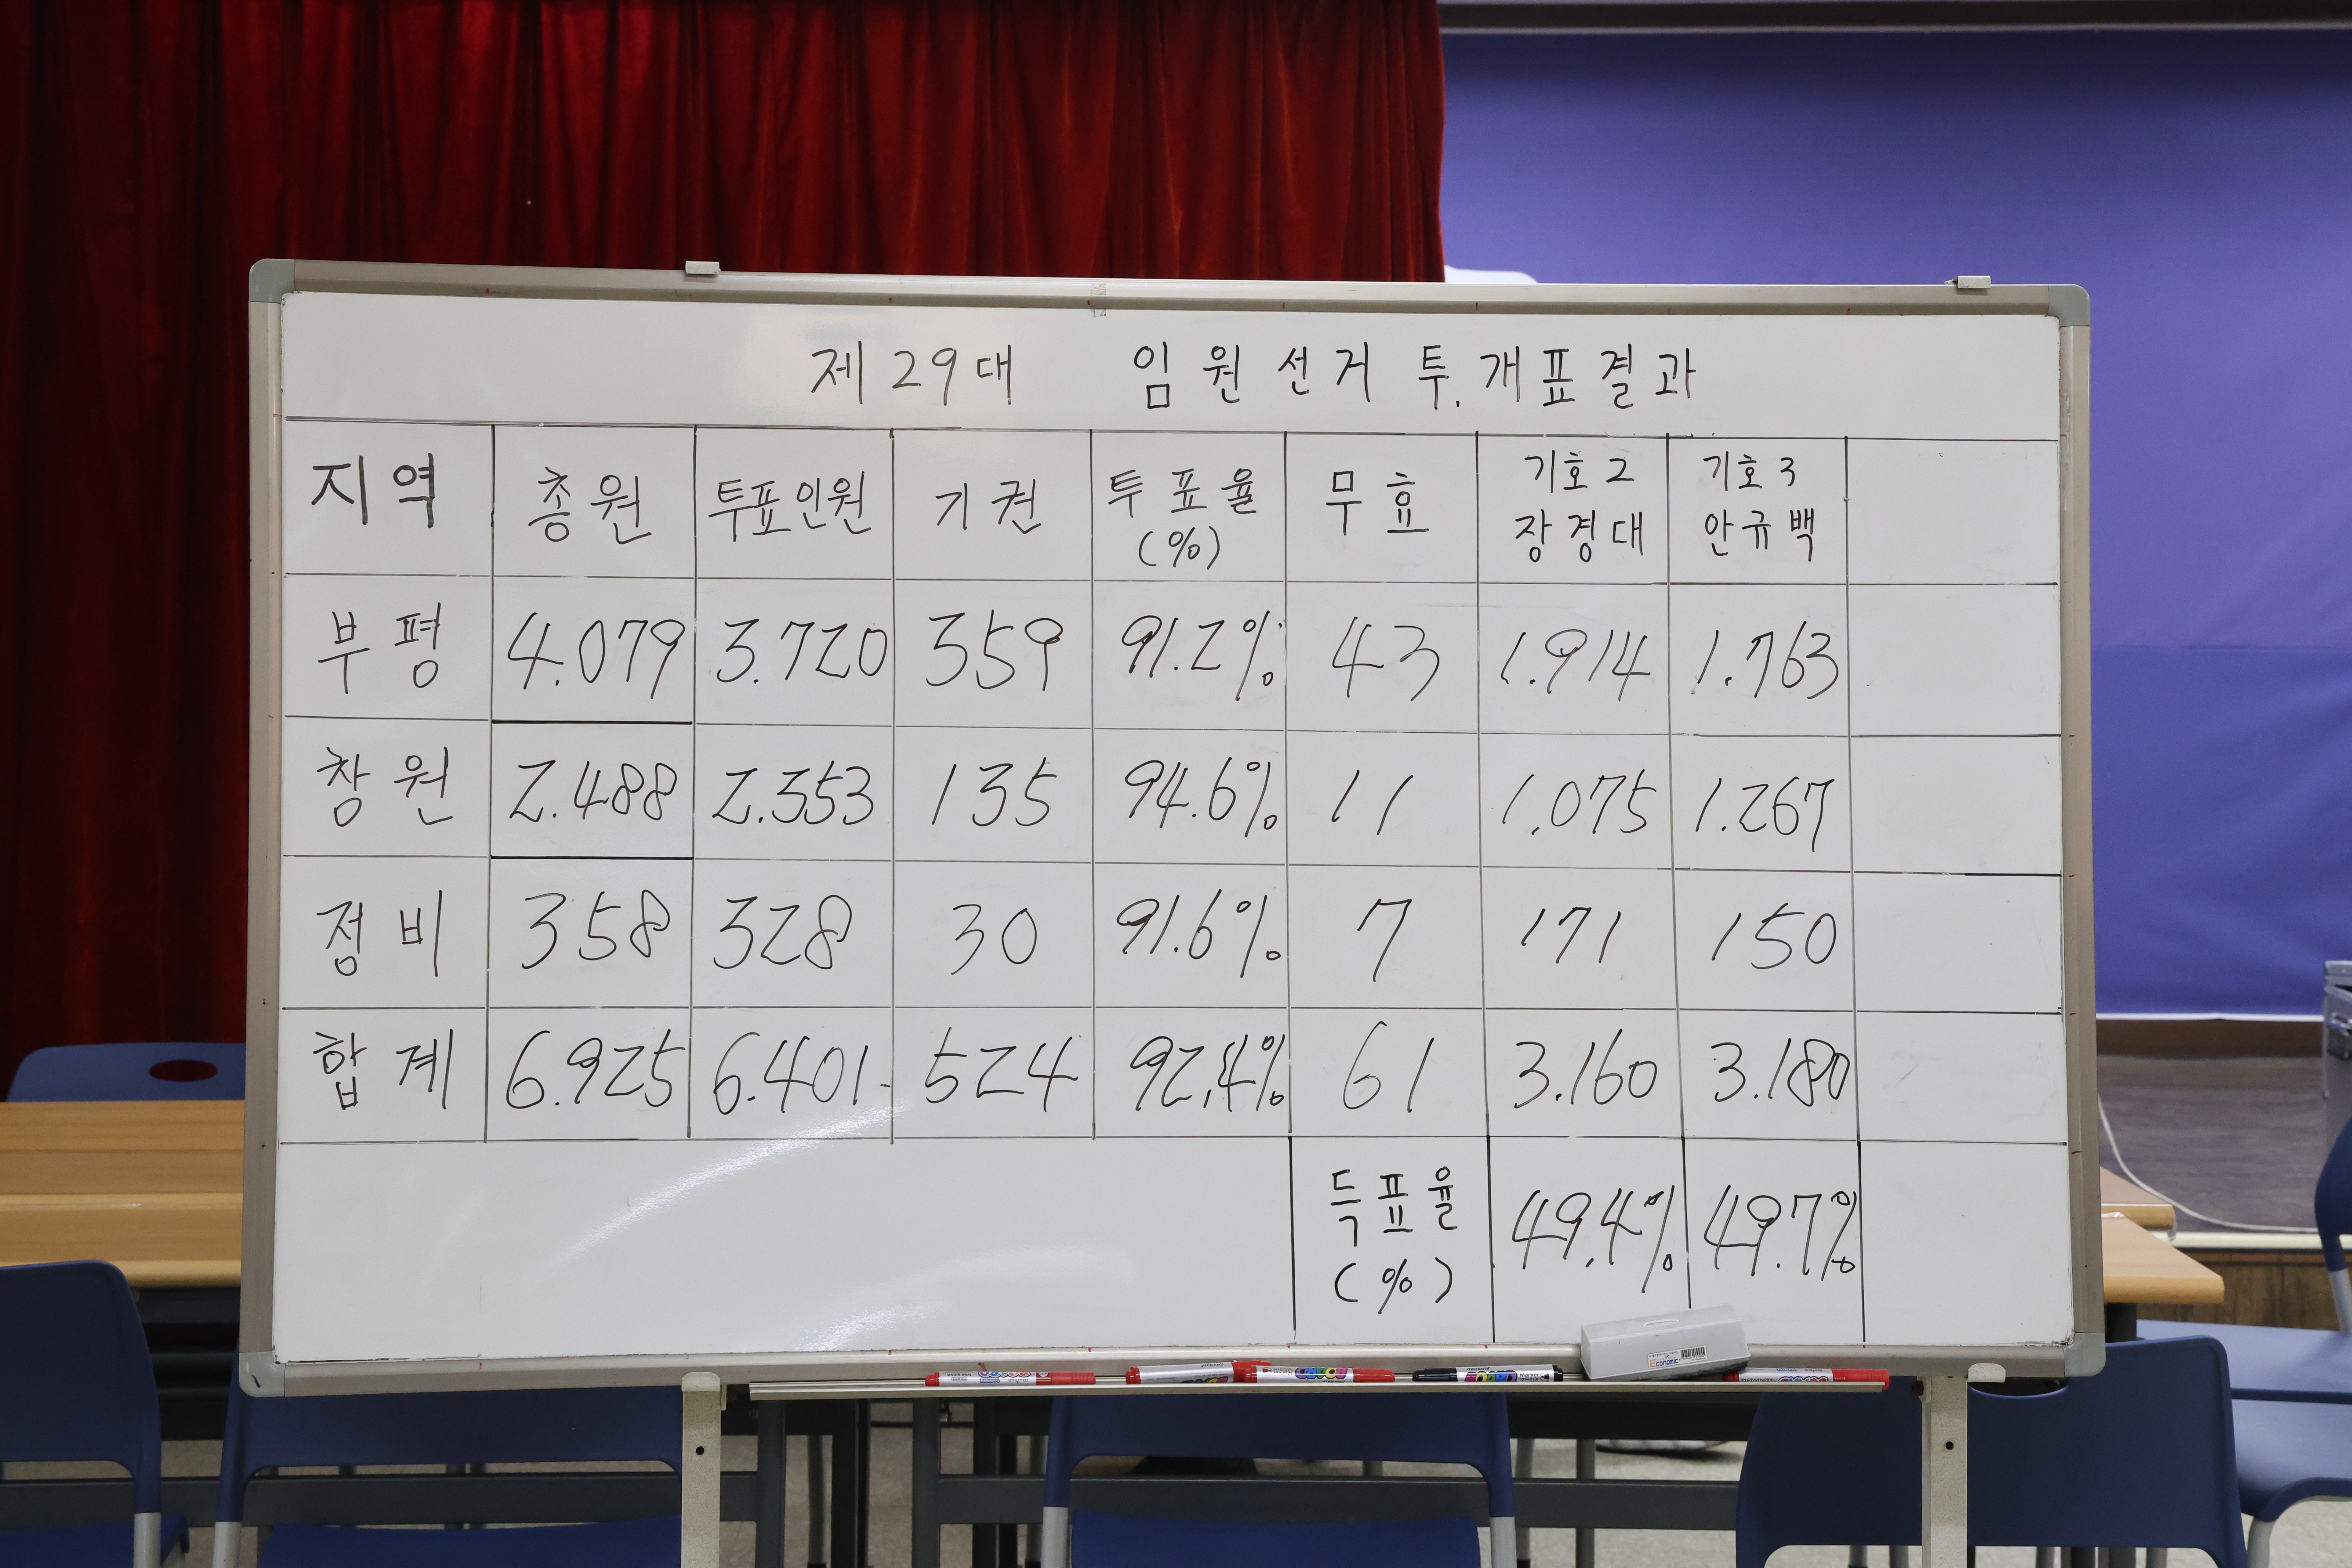 제 29대 임원선거 투.개표결과
지역 총원 투표인원 기권 투표율 (%) 무효 기호 2 장경대 기호 3 안규백
부평 4.079 3.720 359 91.2% 43 1.914 1.763
창원 2.488 2.353 135 94.6% 11 1.075 1.267
정비 358 328 30 91.6% 7 171 150
합계 6.925 6.401 524 92.4% 61 3.160 3.180
득표율 (%) 49.4% 49.7%
Economic